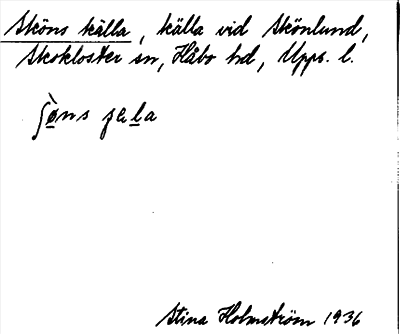 Sköns källa, källa vid Skönlund,
Skokloster sn, Håbo hd, Upps. l.
ʃø̀ns
Stina Holmström 1936